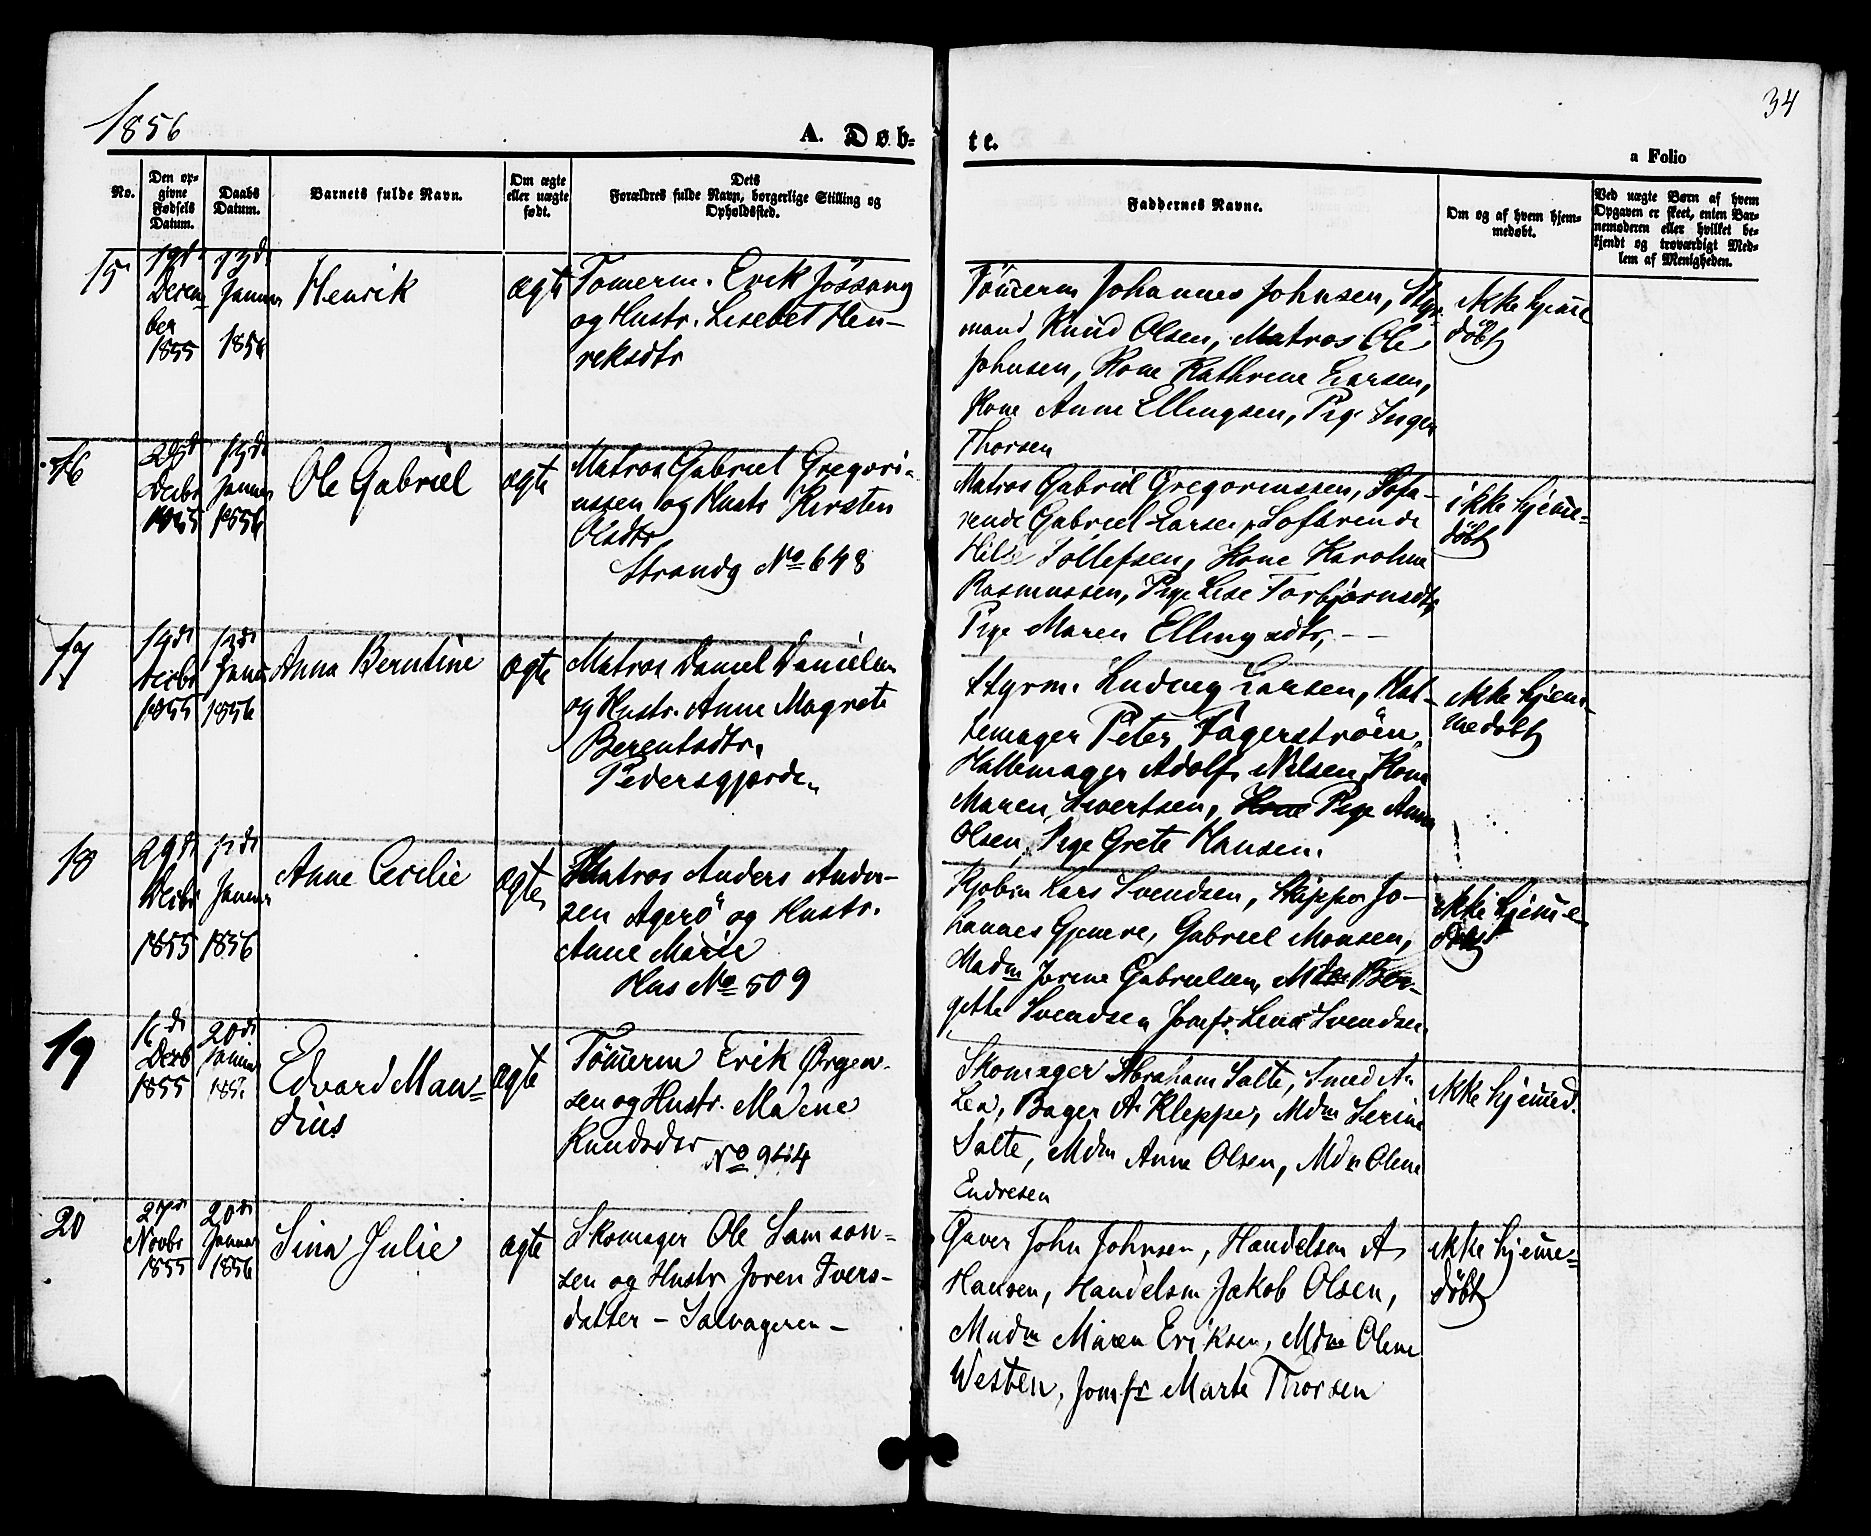 1856
A. Døb-
te.
34
a Folio
No.
Den op-
givne
Fødsels
Datum.
Daabs
Datum.
Barnets fulde Navn.
Om ægte
eller uægte
født.
Dets
Forældres fulde Navn, borgerlige Stilling og
Opholdssted.
Faddernes Navne.
Om og af hvem hjem-
medøbt.
Ved uægte Børn af hvem
Opgaven er skeet, enten Bar-
nemoderen eller hvilket be-
kjendt og troværdigt Med-
lem af Menigheden.
15
19di
Decem
ber
1855
13di
Januar
1856
Henrik
ægte
Tømerm. Erik Jøssang
og Hustr. Lisebet Hen-
reksdtr
Tømerm Johannes Johnsen, Styr-
mand Knud Olsen, Matros Ole
Johnsen, Kone Kathrine Larsen,
Kone Anne Ellingsen, Pige Inger
Thorsen
ikke hjeme
døbt
16
Decbr
1855
13di
Januar
1856
Ole Gabriel
ægte
Matros Gabriel Gregori-
ussen og Hustr Kirsten
Olsdtr
Strandg No 648
Matros Gabriel Gregoriussen, Sofa-
rende Gabriel Larsen, Sofarende
Tollefsen, Kone Karoline
Rasmussen, Pige Lise Torbjørnsdtr,
Pige Maren Ellingsdtr, - -
ikke hjeme-
døbt
17
14di
Decbr
1855
13di
Januar
1856
Anna Berntine
ægte
Matros Daniel Danielsen
og Hustr. Anne Magrete
Berentsdtr.
Pedersgjerde.
Styrm. Ludvig Larsen, Hat-
temager Peter Fagerstrøm,
Hattemager Adolf Nilsen, Kone
Maren Sivertsen, Pige Anna
Olsen, Pige Grete Hansen.
ikke hjem-
medøbt
18
29di
Decbr
1855
13di
Januar
1856
Anne Cecilie
ægte
Matros Anders Ander-
sen Agerø og Hustr.
Anne Marie
Hus No 509
Kjøbm Lars Svendsen, Skipper Jo-
hannes Gjemre, Gabriel Monsen,
Madm Jorine Gabrielsen, Ber-
gitte Svendsen Jomfr. Lena Svendsen
ikke hjeme
døbt
19
16di
Decb
1855
20di
Januar
185.
Edvard Man-
dius
ægte
Tømerm Erik Ørgen-
sen og Hustr. Malene
Knudsdtr No 944
Skomager Abraham Salte, Smed A.
Lea, Bager A. Klepper, Mdm Serine
Salte, Mdm Anne Olsen, Mdm Oline
Endresen
ikke hjemed.
20
27di
Novbr
1855
20di
Januar
1856
Sina Julie
ægte
Skomager Ole Samson-
sen og Hustr Joren Ivers-
datter - Salvageren -
Gaver John Johnsen, Handelsm A
Hansen, Handelsm Jakob Olsen,
Madm Maren Eriksen, Mdm Oline
Westen, Jomfr Marte Thorsen
ikke hjeme-
døbt